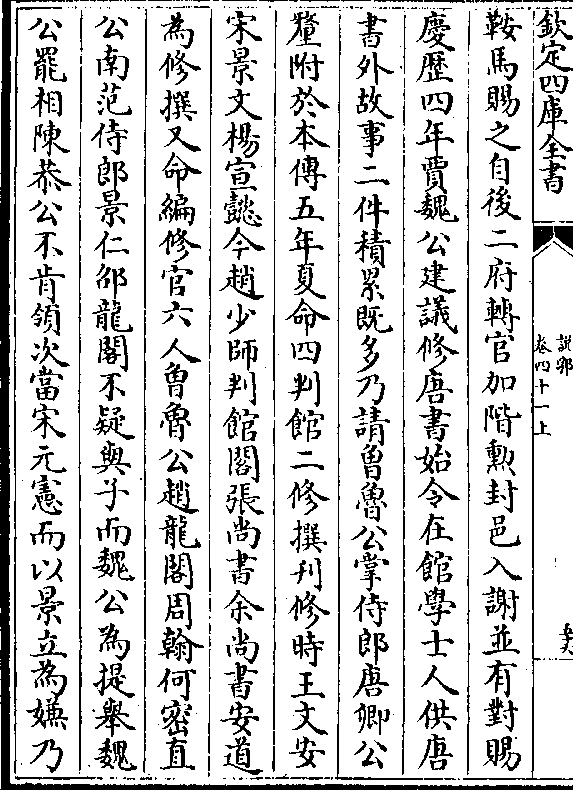 欽定四庫全書
說郛
卷四十一上
鞍馬賜之自後二府轉官加階勲封邑入謝並有對賜
慶歴四年賈魏公建議修唐書始令在館學士人供唐
書外故事二件積累既多乃請曾魯公掌侍郎唐卿分
釐附於本傳五年夏命四判館二修撰刋修時王文安
宋景文楊宣懿今趙少師判館閣張尚書余尚書安道
為修撰又命編修官六人曾魯公趙龍閣周翰何密直
公南范侍郎景仁邵龍閣不疑與予而魏公為提舉魏
公罷相陳恭公不肯領次當宋元憲而以景立為嫌乃